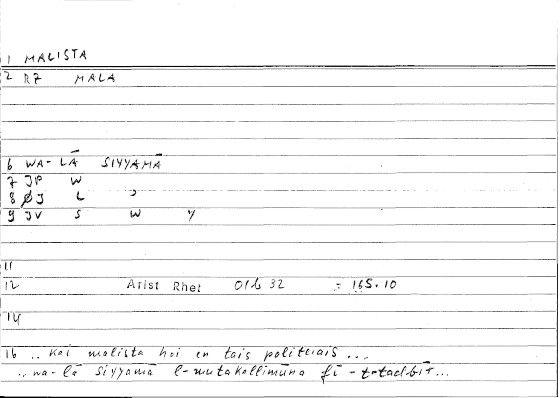 1 MALISTA
2 RZ MALA
6 WA-LĀ SIYYAMĀ
7 JP W
8 ØJ L ʾ
9 JV S W Y
11
12 Arist Rhet 01b 32 = 165.10
14
16 .. kai malista hoi en tais politeiais ...
.. wa-lā siyyamā l-mutakallimūna fī-t-tadbīr ...